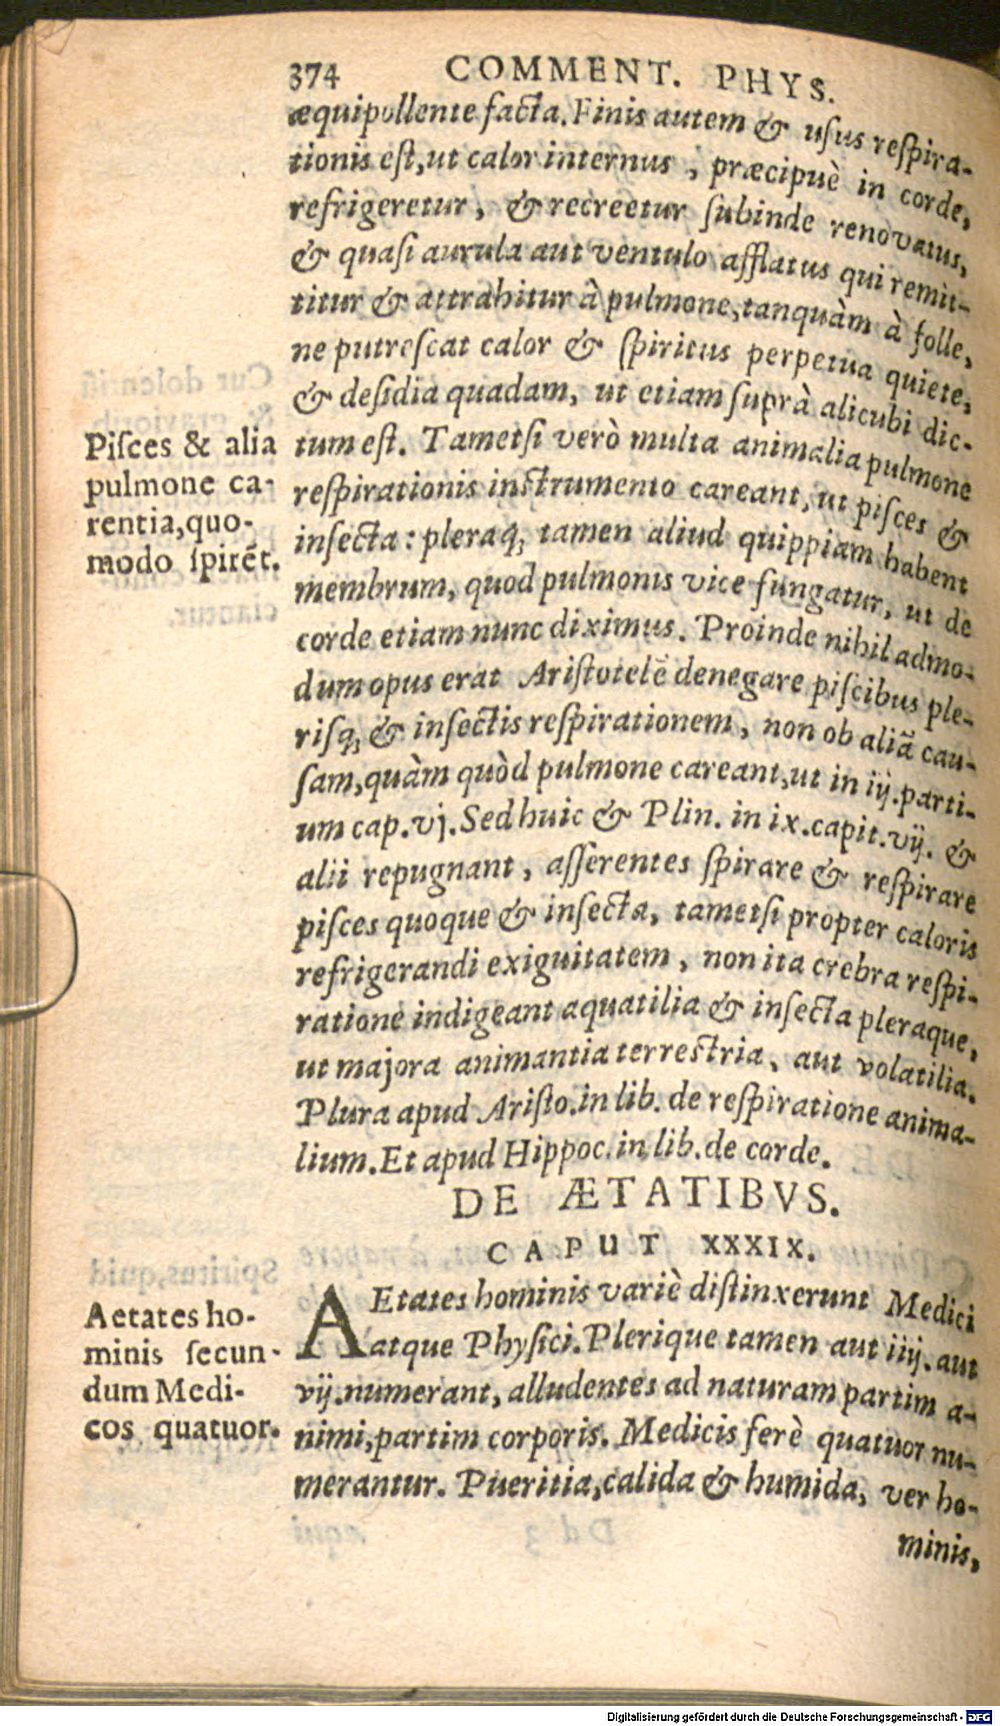 374 COMMENT. PHYS.
æquipollente facta. Finis autem & uſus reſpira-
tionis eſt, ut calor internus, præcipuè in corde,
refrigeretur, & recreetur ſubinde renovatus,
& quaſi aurula aut ventulo afflatus qui remit-
titur & attrahitur à pulmone, tanquàm à folle,
ne putreſcat calor & ſpiritus perpetua quiete,
& deſidia quadam, ut etiam ſuprà alicubi dic-
tum eſt. Tametſi verò multa animalia pulmone
reſpirationis inſtrumento careant, ut piſces &
inſecta: pleraq; tamen aliud quippiam habent
membrum, quod pulmonis vice fungatur, ut de
corde etiam nunc diximus. Proinde nihil admo-
dum opus erat Ariſtotelẽ denegare piſcibus ple-
riſq; & inſectis reſpirationem, non ob aliã cau-
ſam, quàm quòd pulmone careant, ut in iij. parti-
um cap. vj. Sed huic & Plin. in ix. capit. vij. &
alii repugnant, aſſerentes ſpirare & reſpirare
piſces quoque & inſecta, tametſi propter caloris
refrigerandi exiguitatem, non ita crebra reſpi-
ratione indigeant aquatilia & inſecta pleraque,
ut majora animantia terreſtria, aut volatilia.
Plura apud Ariſto. in lib. de reſpiratione anima-
lium. Et apud Hippoc. in lib. de corde.
Piſces & alia
pulmone ca-
rentia, quo-
modo ſpirẽt.
DE ÆTATIBVS.
CAPUT XXXIX.
AEtates hominis variè diſtinxerunt Medici
atque Phyſici. Plerique tamen aut iiij. aut
vij. numerant, alludentes ad naturam partim a-
nimi, partim corporis. Medicis ferè quatuor nu-
merantur. Pueritia, calida & humida, ver ho-
minis,
Aetates ho-
minis ſecun-
dum Medi-
cos quatuor.
Digitalisierung gefördert durch die Deutsche Forschungsgemeinschaft - DFG